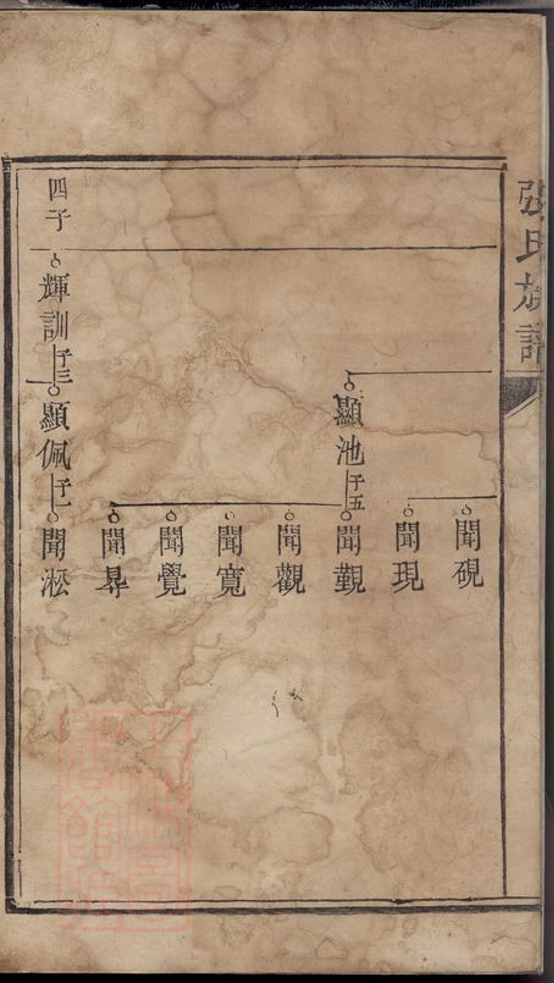 張氏族譜
聞硯
聞現
顯池
子五
聞覲
聞觀
聞寬
聞覺
聞㝵
四子
輝訓
子三
顯佩
子七
聞淞